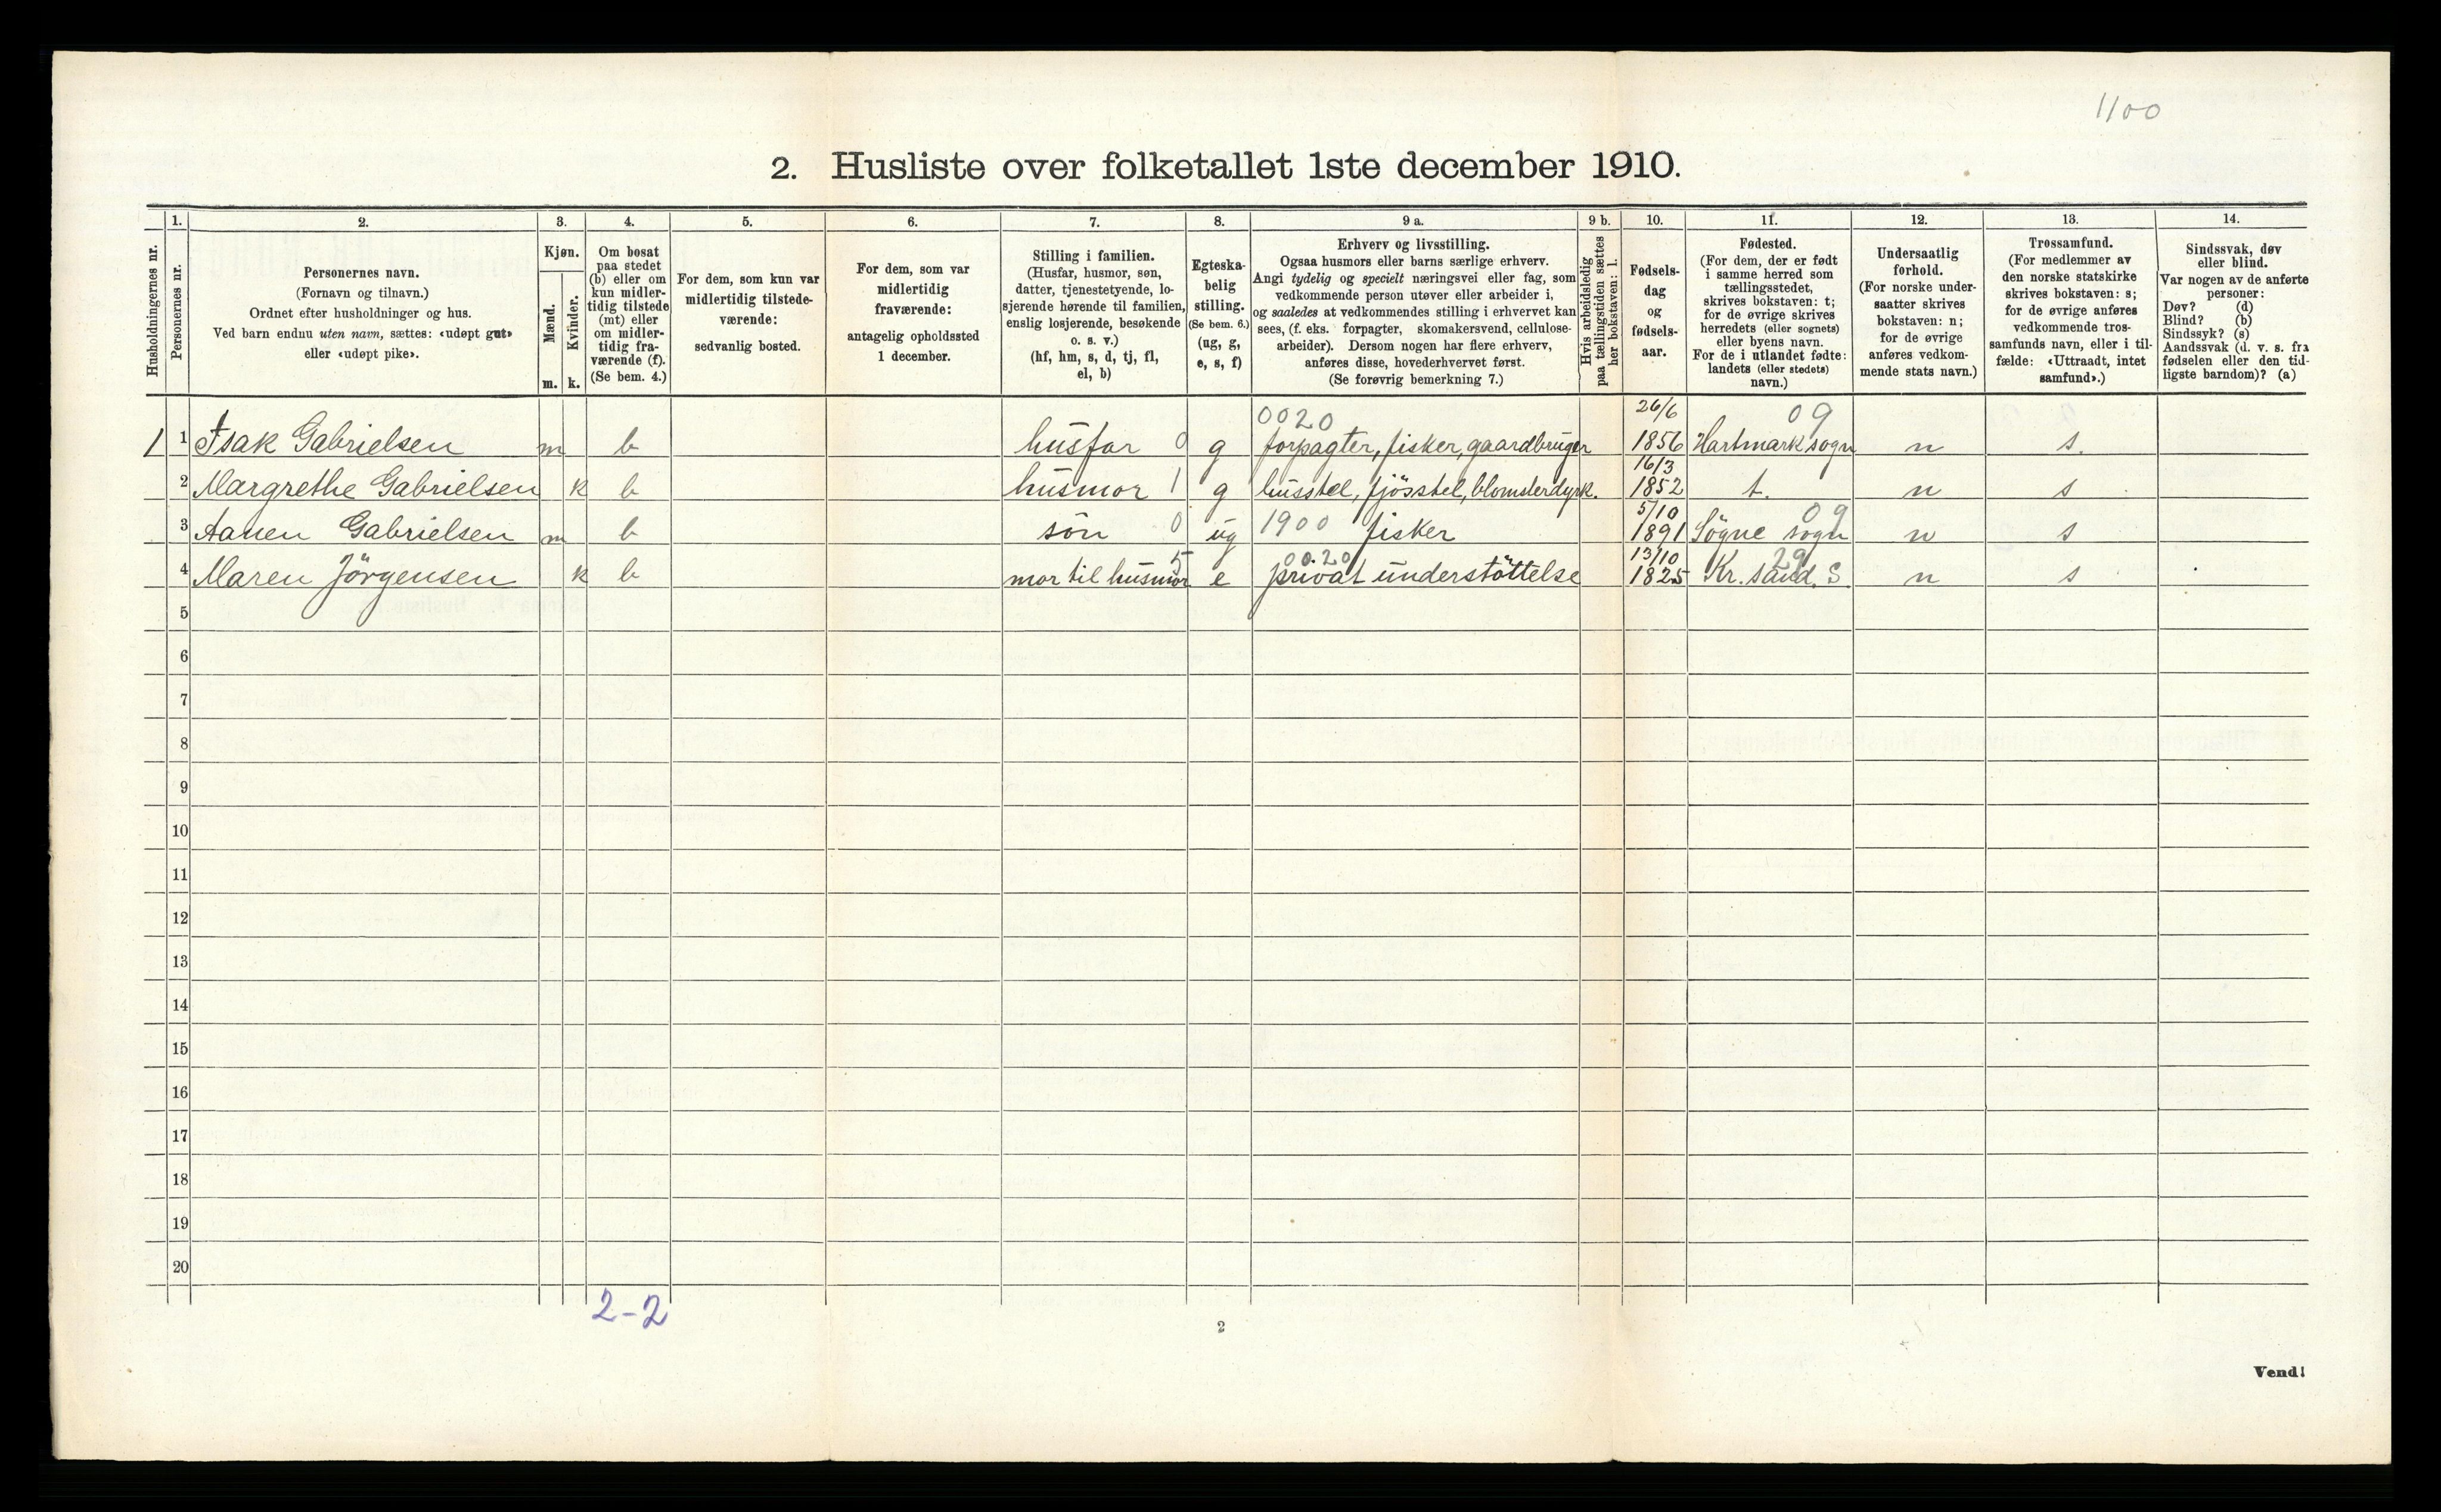 1100
2. Husliste over folketallet 1ste december 1910.
Husholdningernes nr.
1.
Personernes nr.
2.
Personernes navn.
(Fornavn og tilnavn.)
Ordnet efter husholdninger og hus.
Ved barn endnu uten navn, sættes: «udøpt gut»
eller «udøpt pike».
3.
Kjøn.
Mænd.
m.
Kvinder.
k.
4.
Om bosat
paa stedet
(b) eller om
kun midler-
tidig tilstede
(mt) eller
om midler-
tidig fra-
værende (f).
(Se bem. 4.)
5.
For dem, som kun var
midlertidig tilstede-
værende:
sedvanlig bosted.
6.
For dem, som var
midlertidig
fraværende:
antagelig opholdssted
1 december.
7.
Stilling i familien.
(Husfar, husmor, søn,
datter, tjenestetyende, lo-
sjerende hørende til familien,
enslig losjerende, besøkende
o. s. v.)
(hf, hm, s, d, tj, fl,
el, b)
8.
Egteska-
belig
stilling.
(Se bem. 6.)
(ug, g,
e, s, f)
9 a.
Erhverv og livsstilling.
Ogsaa husmors eller barns særlige erhverv.
Angi tydelig og specielt næringsvei eller fag, som
vedkommende person utøver eller arbeider i,
og saaledes at vedkommendes stilling i erhvervet kan
sees, (f. eks. forpagter, skomakersvend, cellulose-
arbeider). Dersom nogen har flere erhverv,
anføres disse, hovederhvervet først.
(Se forøvrig bemerkning 7.)
9 b.
Hvis arbeidsledig
paa tællingstiden sættes
her bokstaven: l.
10.
Fødsels-
dag
og
fødsels-
aar.
11.
Fødested.
(For dem, der er født
i samme herred som
tællingsstedet,
skrives bokstaven: t;
for de øvrige skrives
herredets (eller sognets)
eller byens navn.
For de i utlandet fødte:
landets (eller stedets)
navn.)
12.
Undersaatlig
forhold.
(For norske under-
saatter skrives
bokstaven: n;
for de øvrige
anføres vedkom-
mende stats navn.)
13.
Trossamfund.
(For medlemmer av
den norske statskirke
skrives bokstaven: s;
for de øvrige anføres
vedkommende tros-
samfunds navn, eller i til-
fælde: «Uttraadt, intet
samfund».)
14.
Sindssvak, døv
eller blind.
Var nogen av de anførte
personer:
Døv? (d)
Blind? (b)
Sindssyk? (s)
Aandssvak (d. v. s. fra
fødselen eller den tid-
ligste barndom)? (a)
0020 26/6 09
1 1 Isak Gabrielsen m b husfar 0 g forpagter, fisker, gaardbruger 1856 Hartmark sogn n s.
16/3
2 Margrethe Gabrielsen k b husmor 1 g husstel, fjösstel, blomsterdyrk. 1852 t. n s
5/10 09
3 Aanen Gabrielsen m b sön 0 ug 1900 fisker 1891 Sögne sogn n s
5 00.20 13/10 29
4 Maren Jörgensen k b mor til husmor e privat understöttelse 1825 Kr. sand. S. n s
5
6
7
8
9
10
11
12
13
14
15
16
17
18
19
20
2-2
2
Vend!